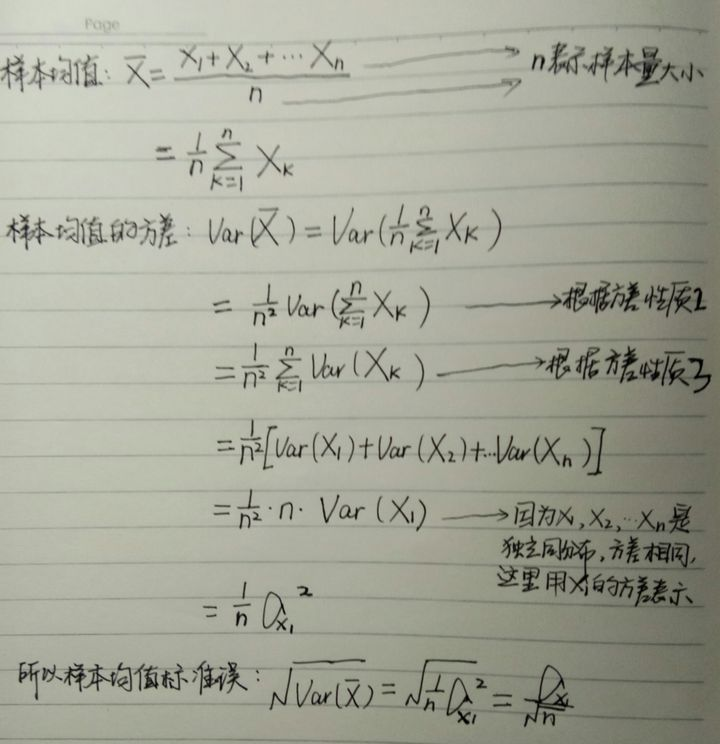 Page
样本均值: X̄ = (X₁+X₂+⋯Xₙ)/n → n表示样本量大小
= 1/n ∑ₖ₌₁ⁿ Xₖ
样本均值的方差: Var(X̄) = Var(1/n ∑ₖ₌₁ⁿ Xₖ)
= 1/n² Var(∑ₖ₌₁ⁿ Xₖ) → 根据方差性质2
= 1/n² ∑ₖ₌₁ⁿ Var(Xₖ) → 根据方差性质3
= 1/n² [Var(X₁)+Var(X₂)+⋯Var(Xₙ)]
= 1/n² · n · Var(X₁) → 因为X₁,X₂,⋯Xₙ是
独立同分布,方差相同,
这里用X₁的方差表示
= 1/n σₓ₁²
所以样本均值标准误: √Var(X̄) = √(1/n σₓ₁²) = σₓ₁/√n